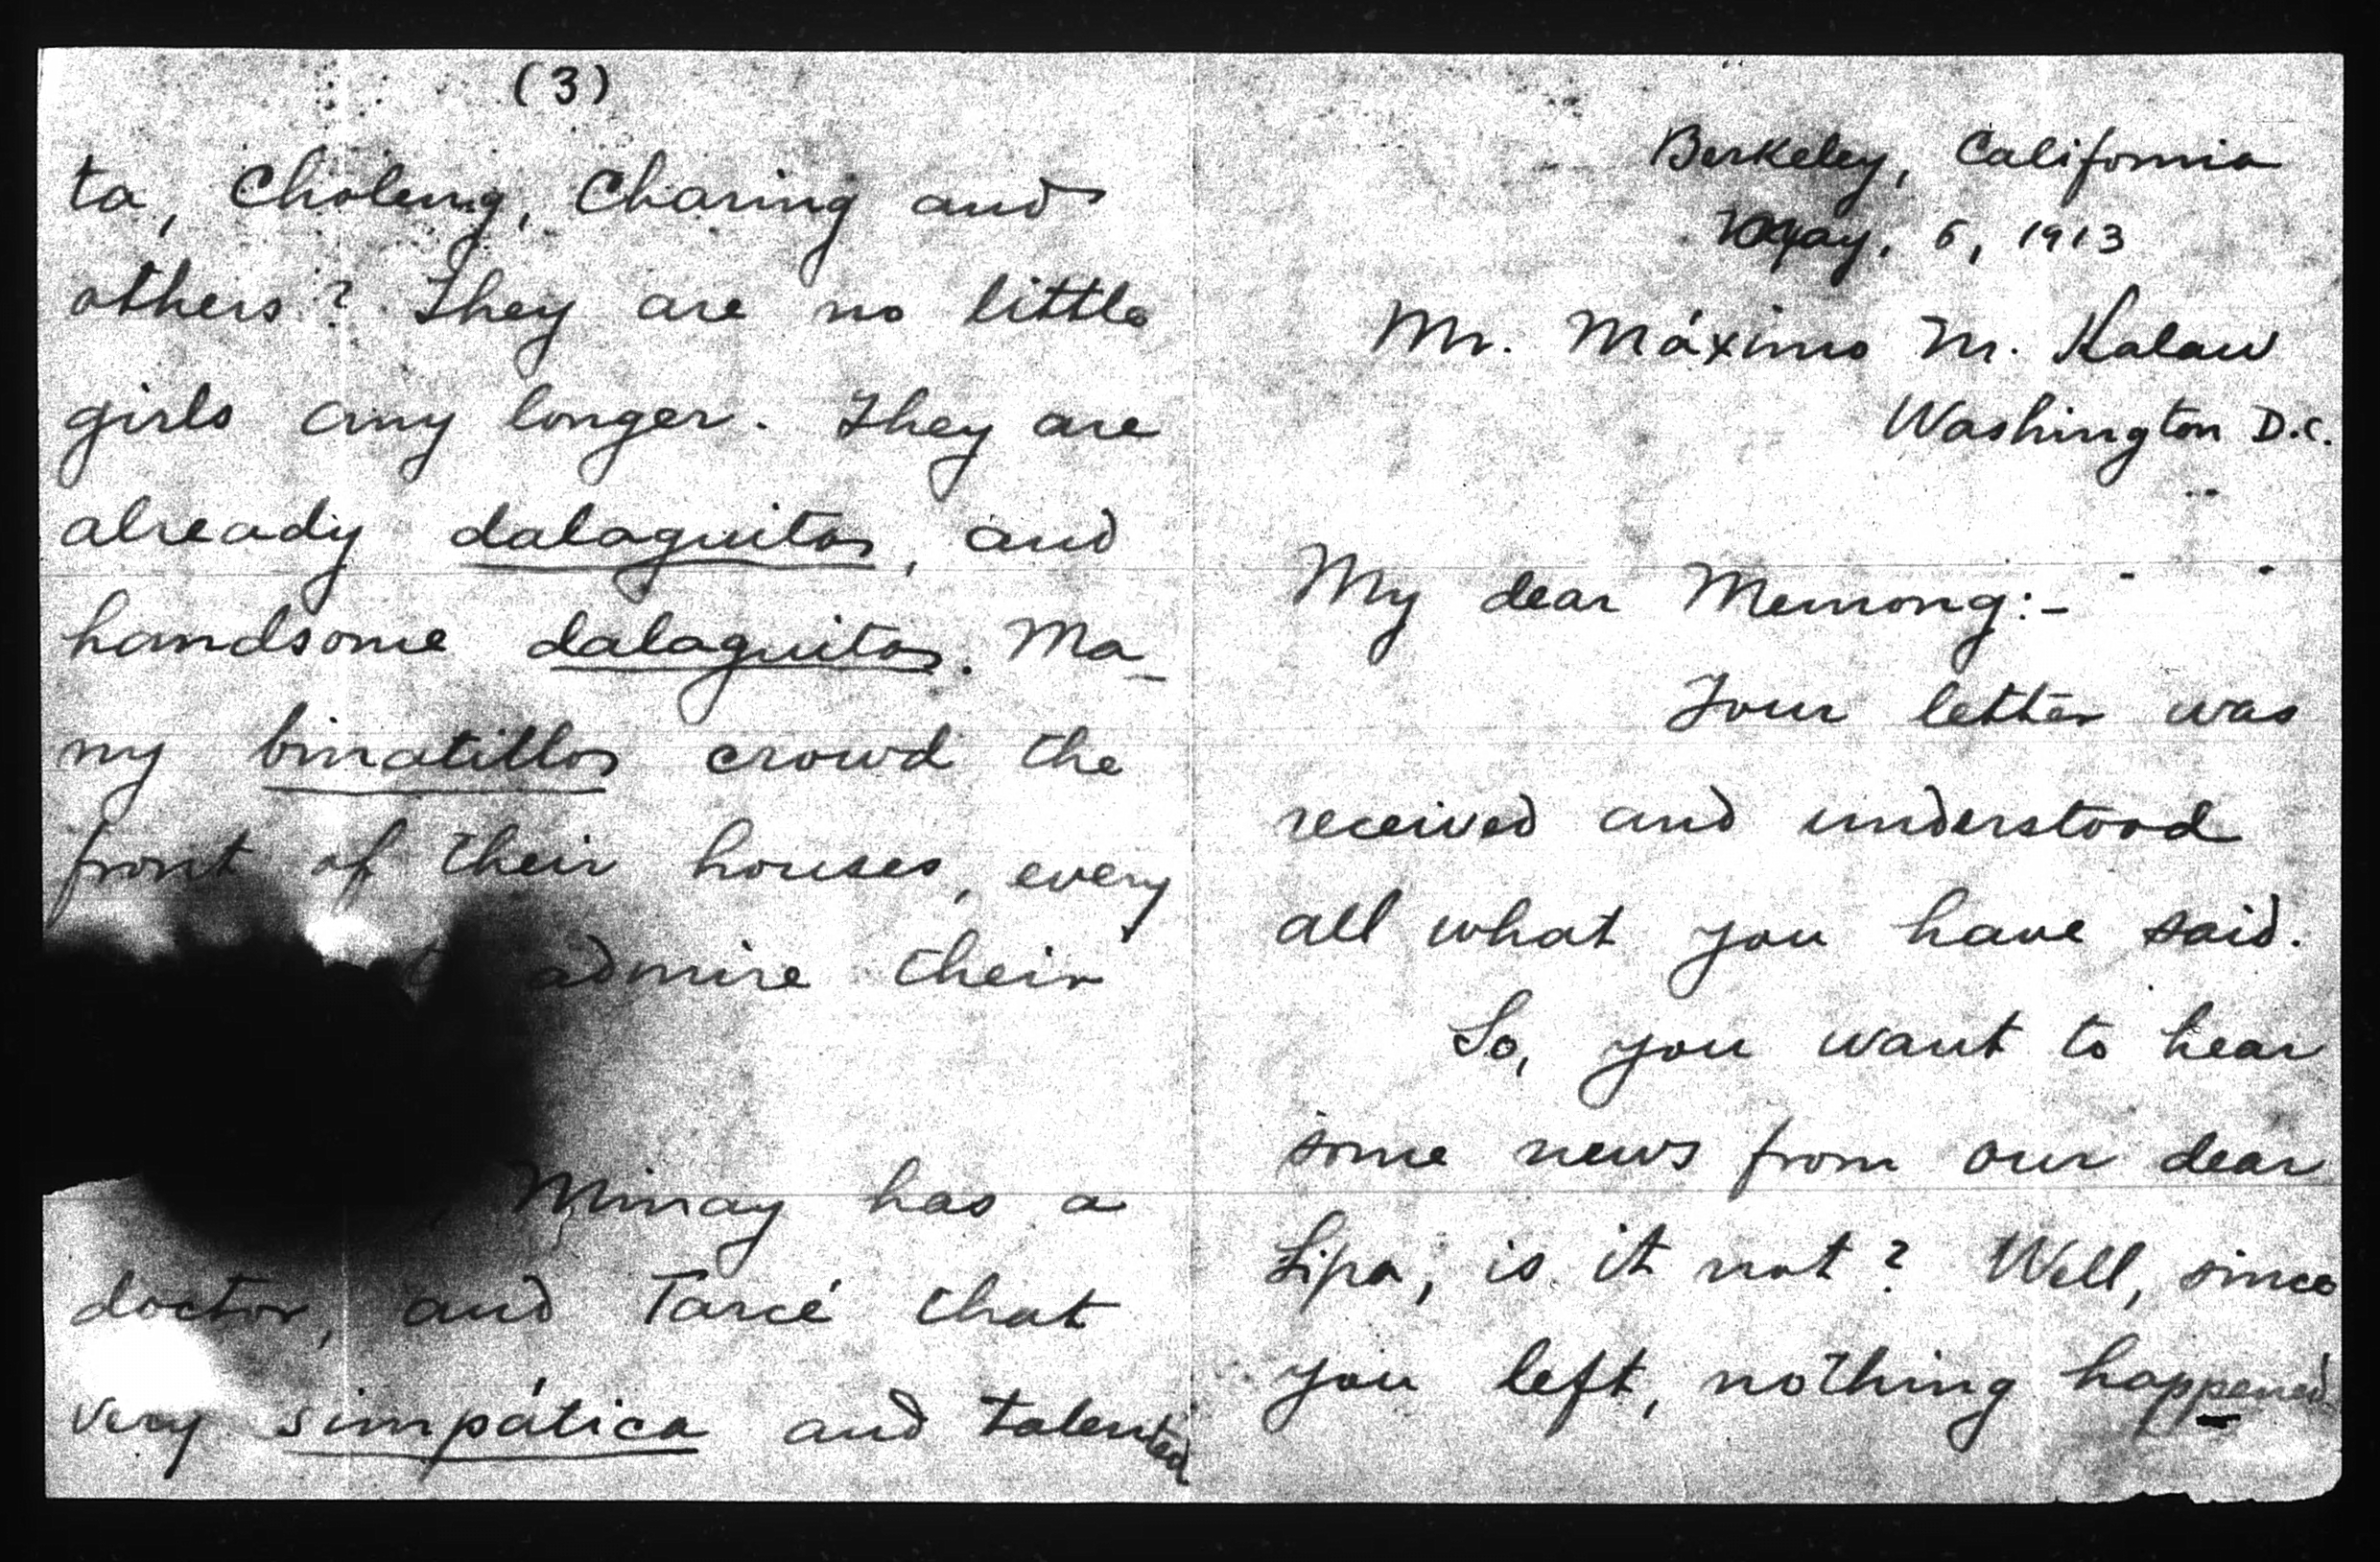 (3)
ta, Choleng, Charing and
others? They are no little
girls any longer. They are
already dalaguitas, and
handsome dalaguitas. Ma-
ny binatillos crowd the
front of their houses, every
to admire their
, Minay has a
doctor, and Tarcé that
very simpática and talented
Berkeley, California
May, 6, 1913
Mr. Máximo M. Kalaw
Washington D.C.
My dear Memong:-
Your letter was
received and understood
all what you have said.
So, you want to hear
some news from our dear
Lipa, is it not? Well, since
you left, nothing happened